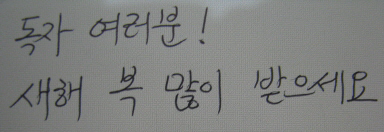 독자 여러분!
새해 복 많이 받으세요